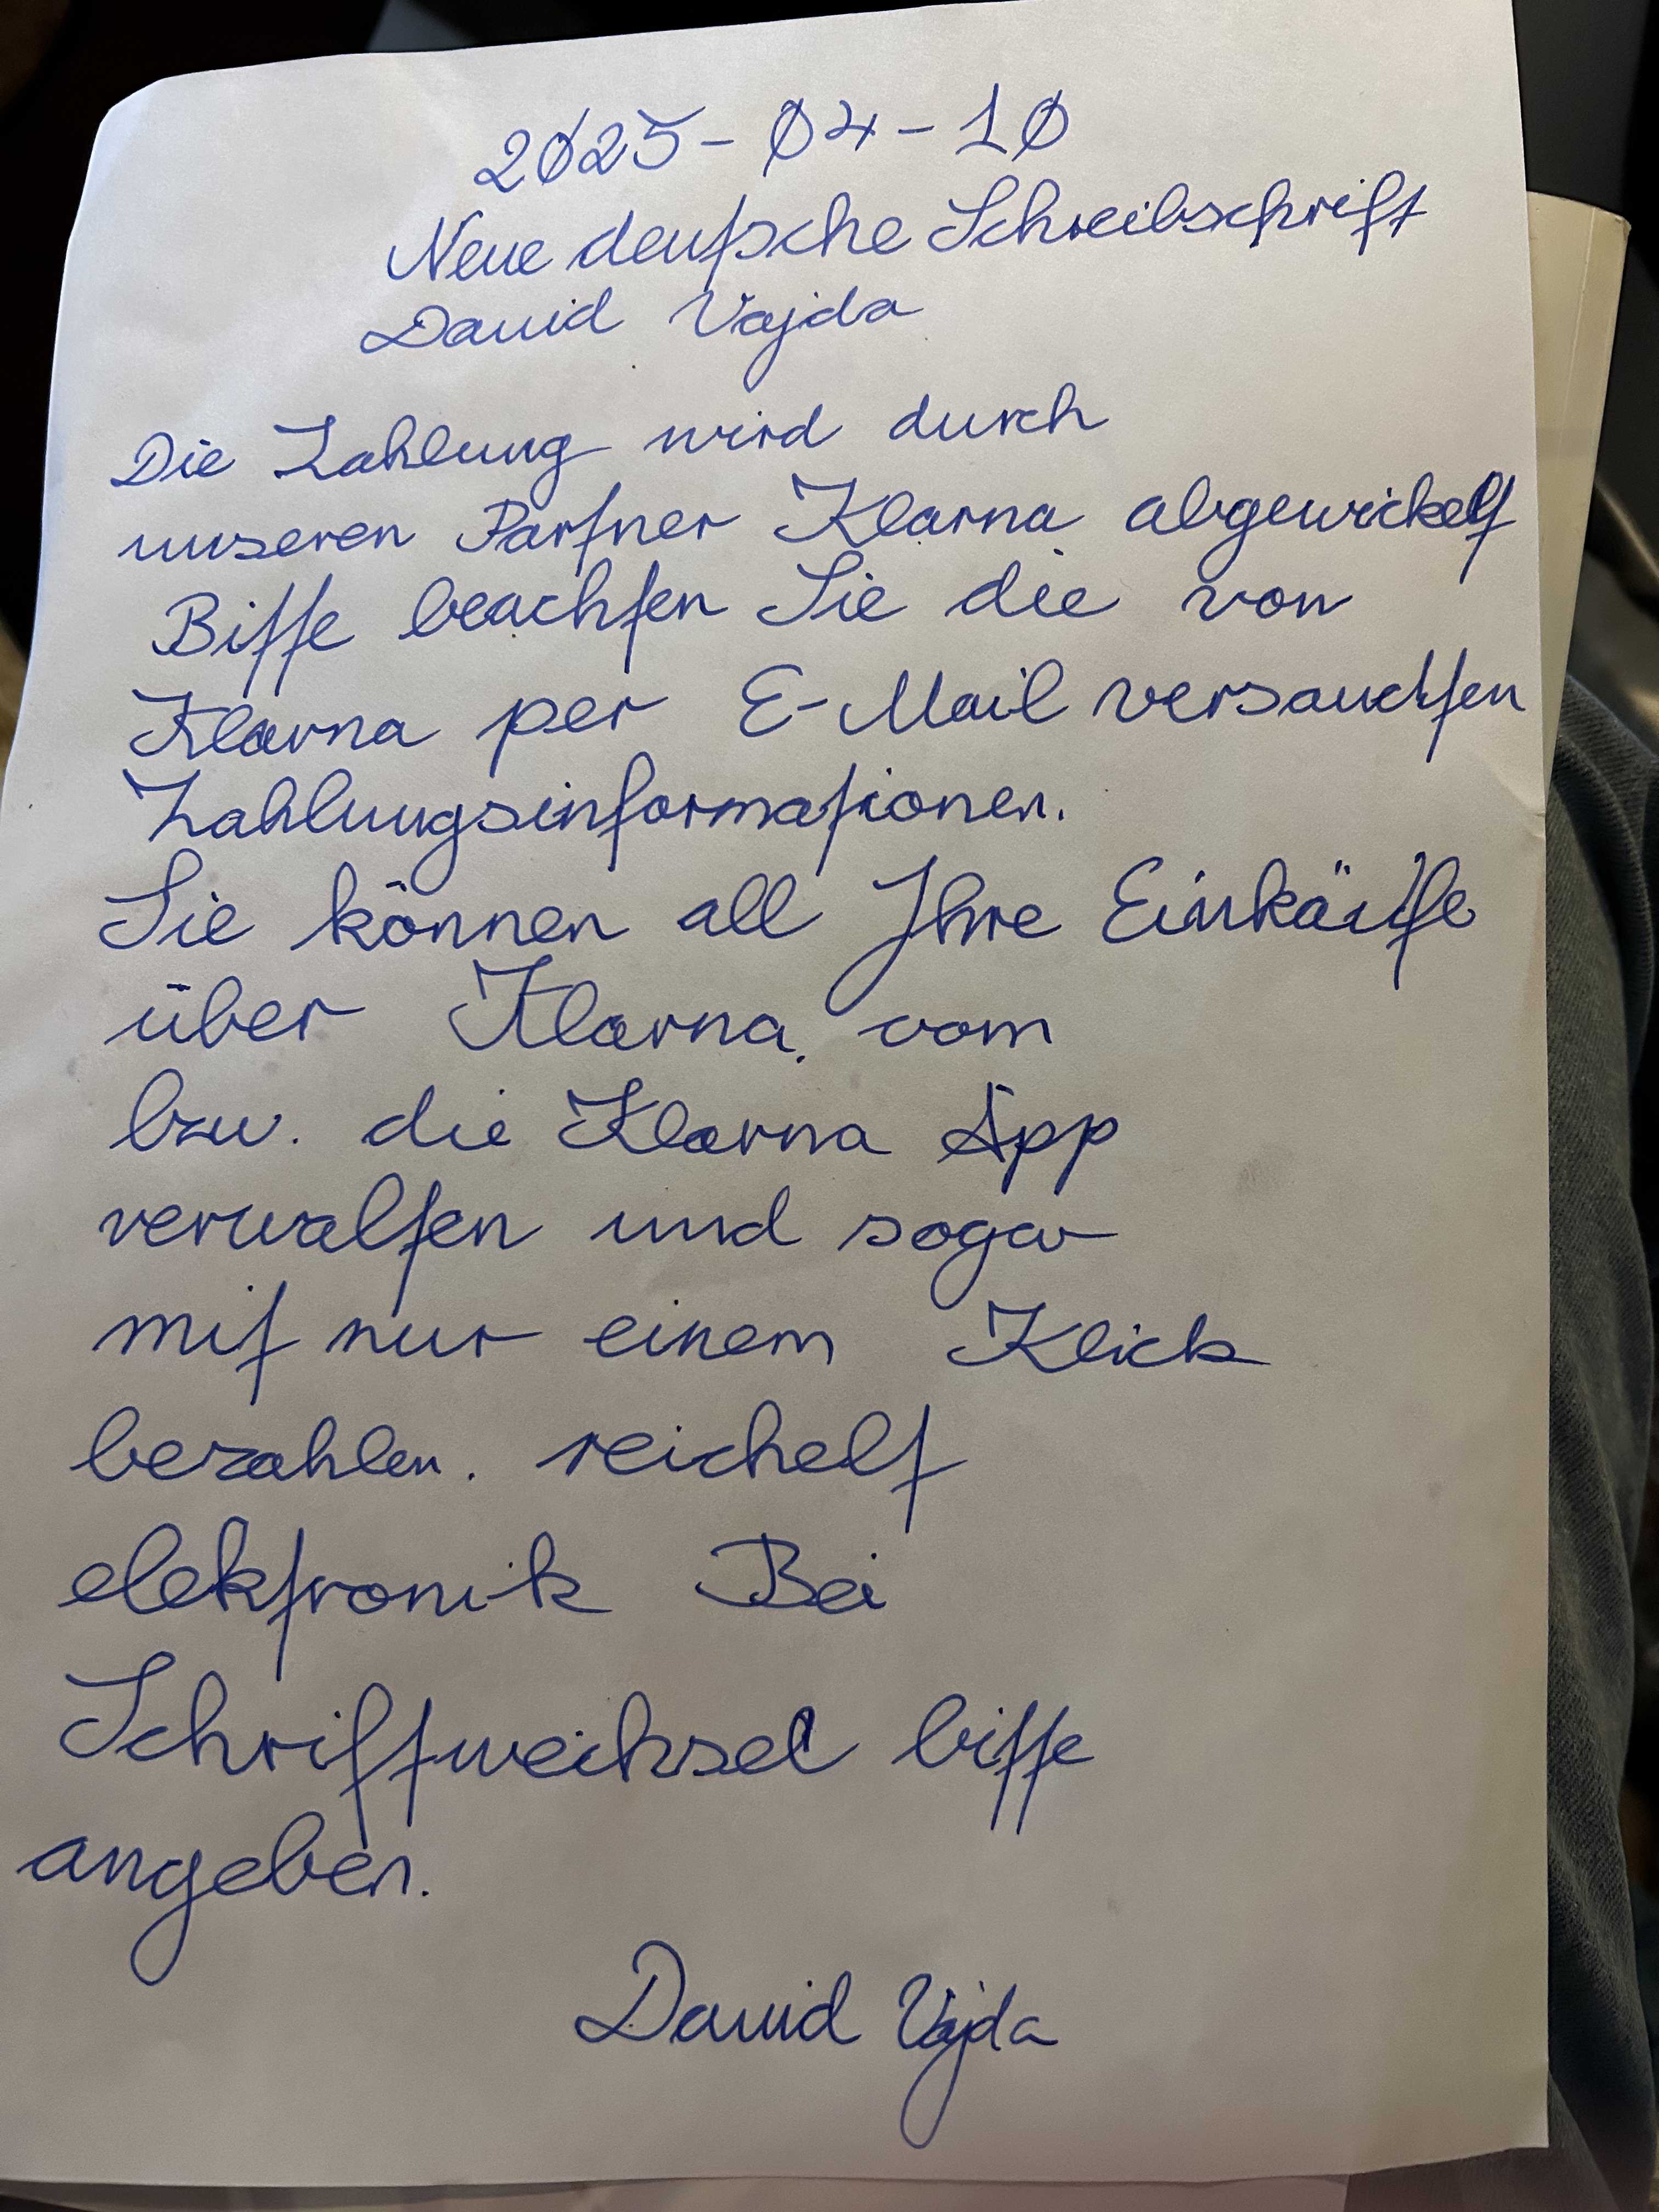 2025-04-10
Neue deutsche Schreibschrift
David Vajda
Die Zahlung wird durch
unseren Partner Klarna abgewickelt
Bitte beachten Sie die von
Klarna per E-Mail versandten
Zahlungsinformationen.
Sie können all Ihre Einkäufe
über Klarna. vom
bzw. die Klarna App
verwalten und sogar
mit nur einem Klick
bezahlen. reichelt
elektronik Bei
Schriftwechsel bitte
angeben.
David Vajda